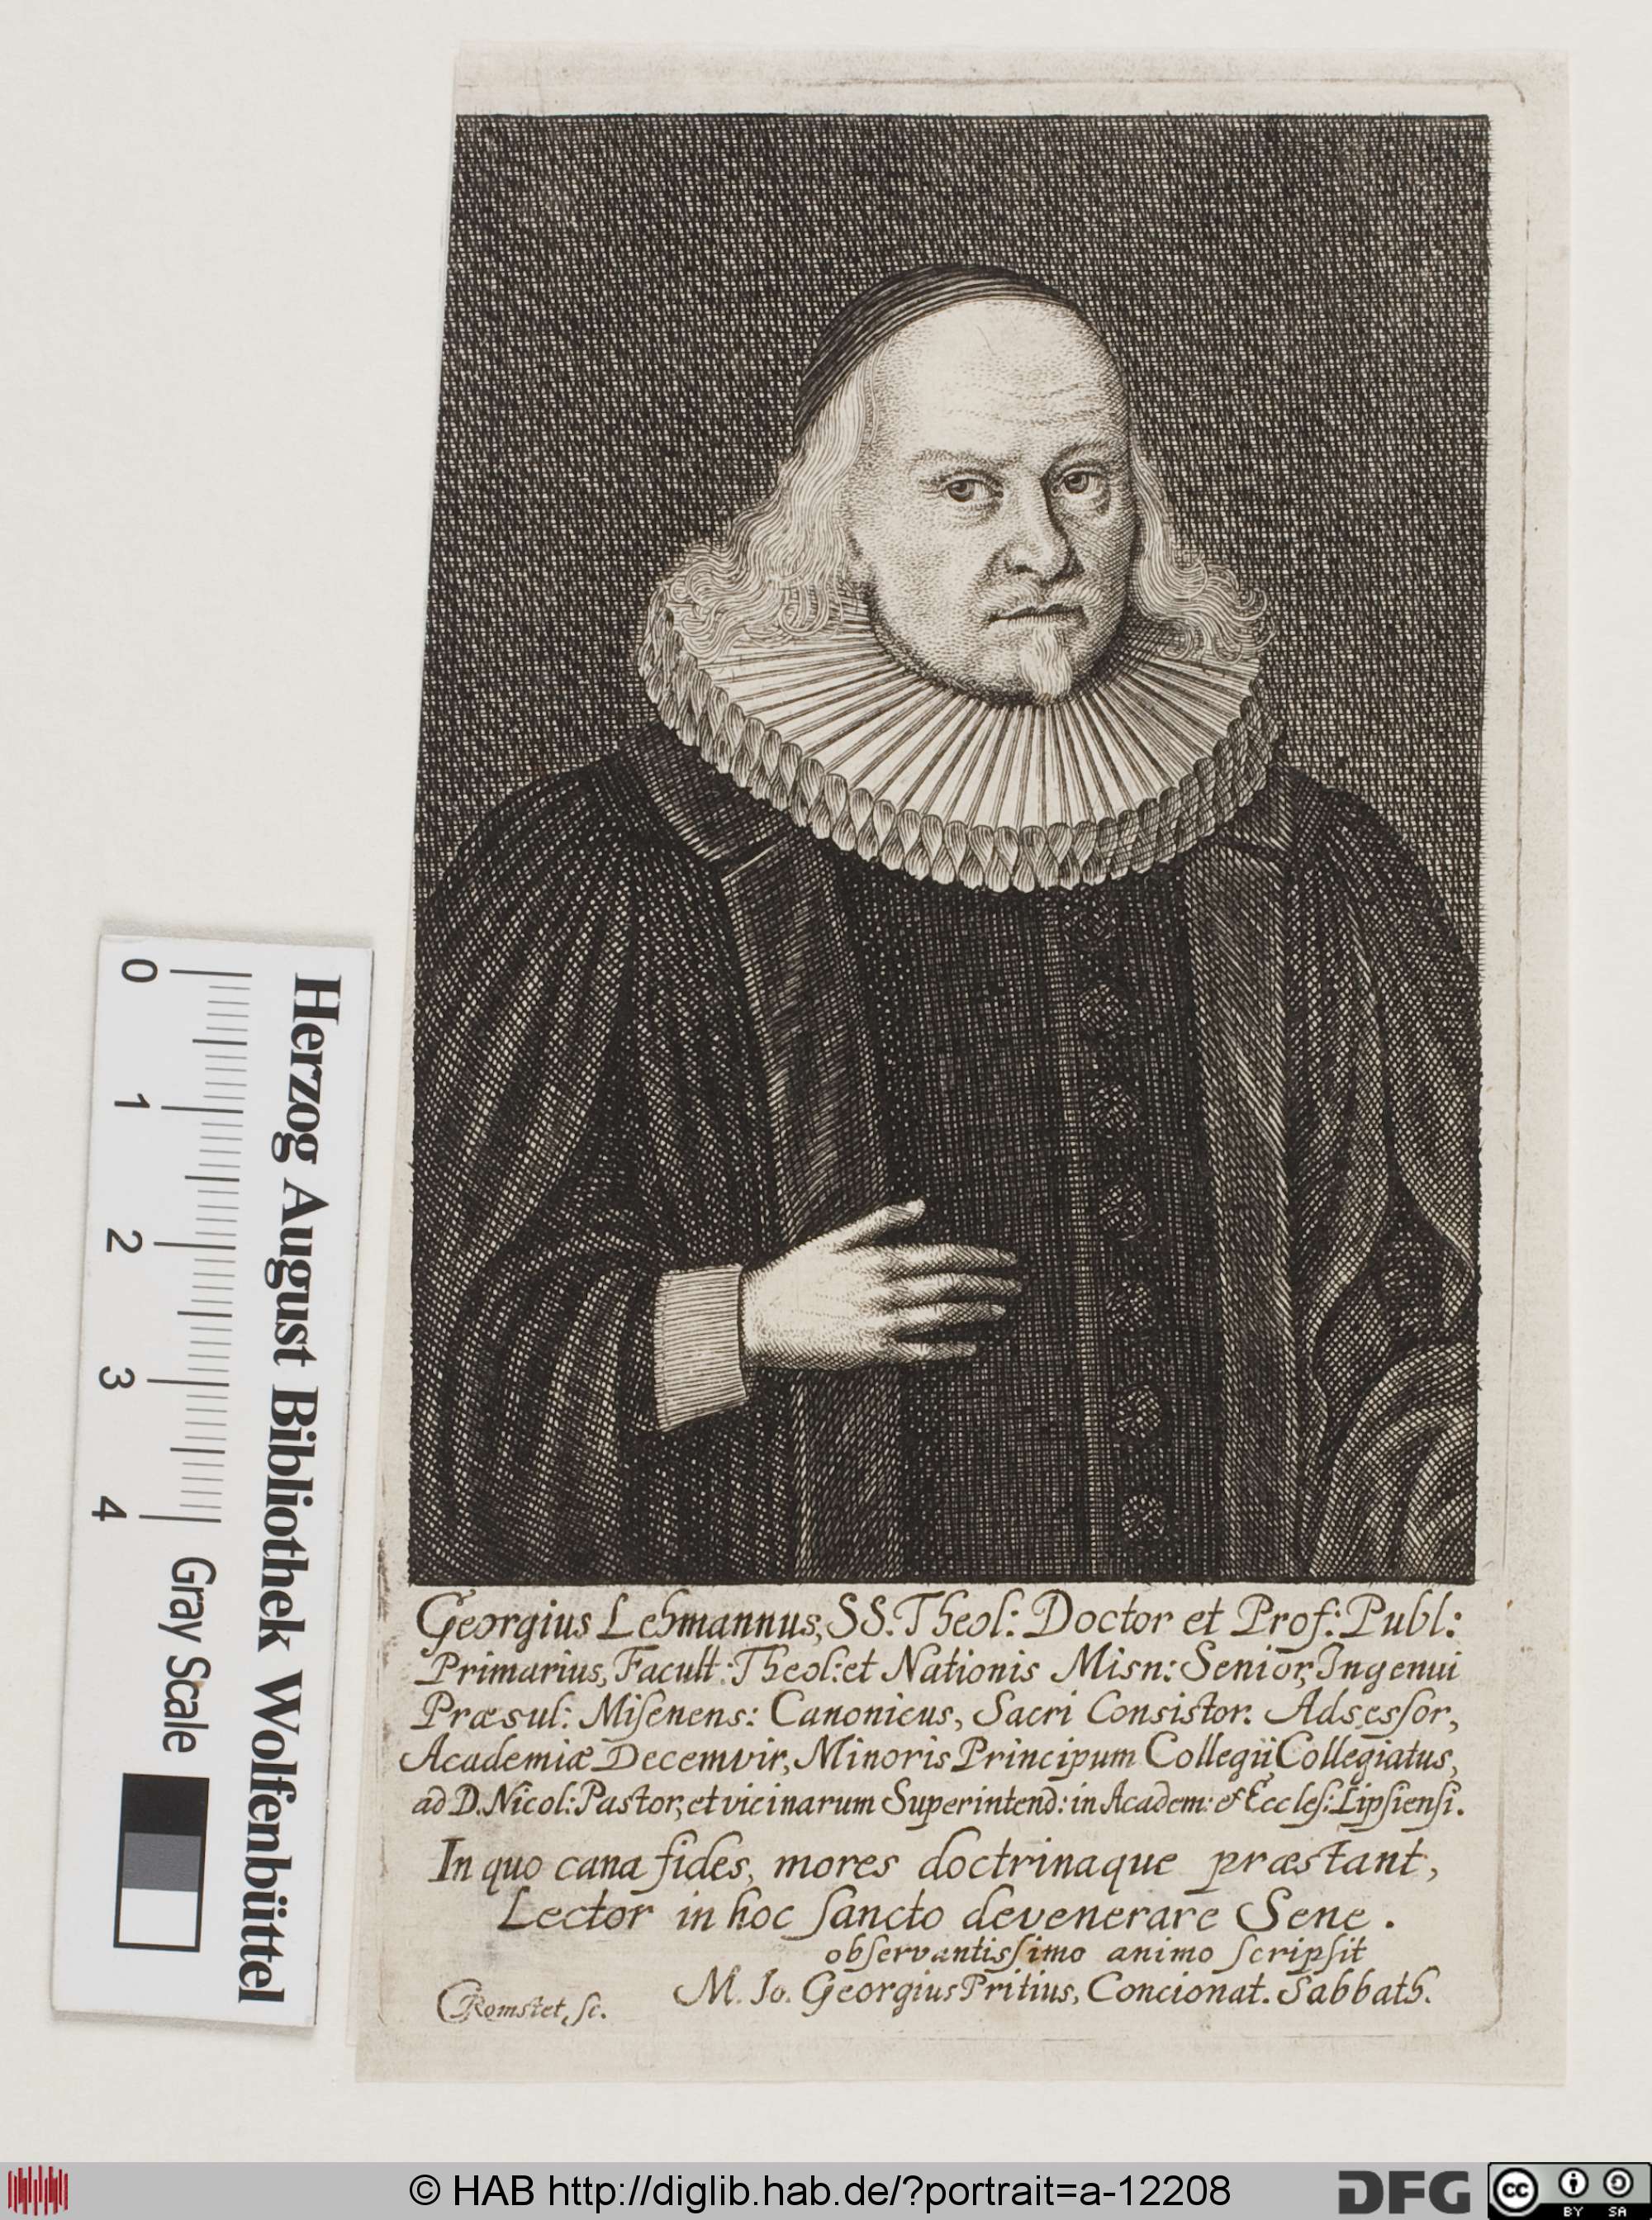 Georgius Lehmannus, SS. Theol: Doctor et Prof: Publ:
Primarius, Facult: Theol: et Nationis Misn: Senior, Ingenui
Præsul: Miſenens: Canonicus, Sacri Consistor. Adsesſor,
Academiæ Decemvir, Minoris Principum Collegii Collegiatus,
ad D. Nicol: Pastor, et vicinarum Superintend: in Academ: & Eccleſ: Lipſienſi.
In quo cana fides, mores doctrinaque præstant,
Lector in hoc ſancto devenerare Sene.
obſervantisſimo animo ſcripſit
M. Jo. Georgius Pritius, Concionat. Sabbath.
CRomstet, ſc.
Herzog August Bibliothek Wolfenbüttel
0 1 2 3 4
Gray Scale
© HAB http://diglib.hab.de/?portrait=a-12208
DFG
cc BY SA